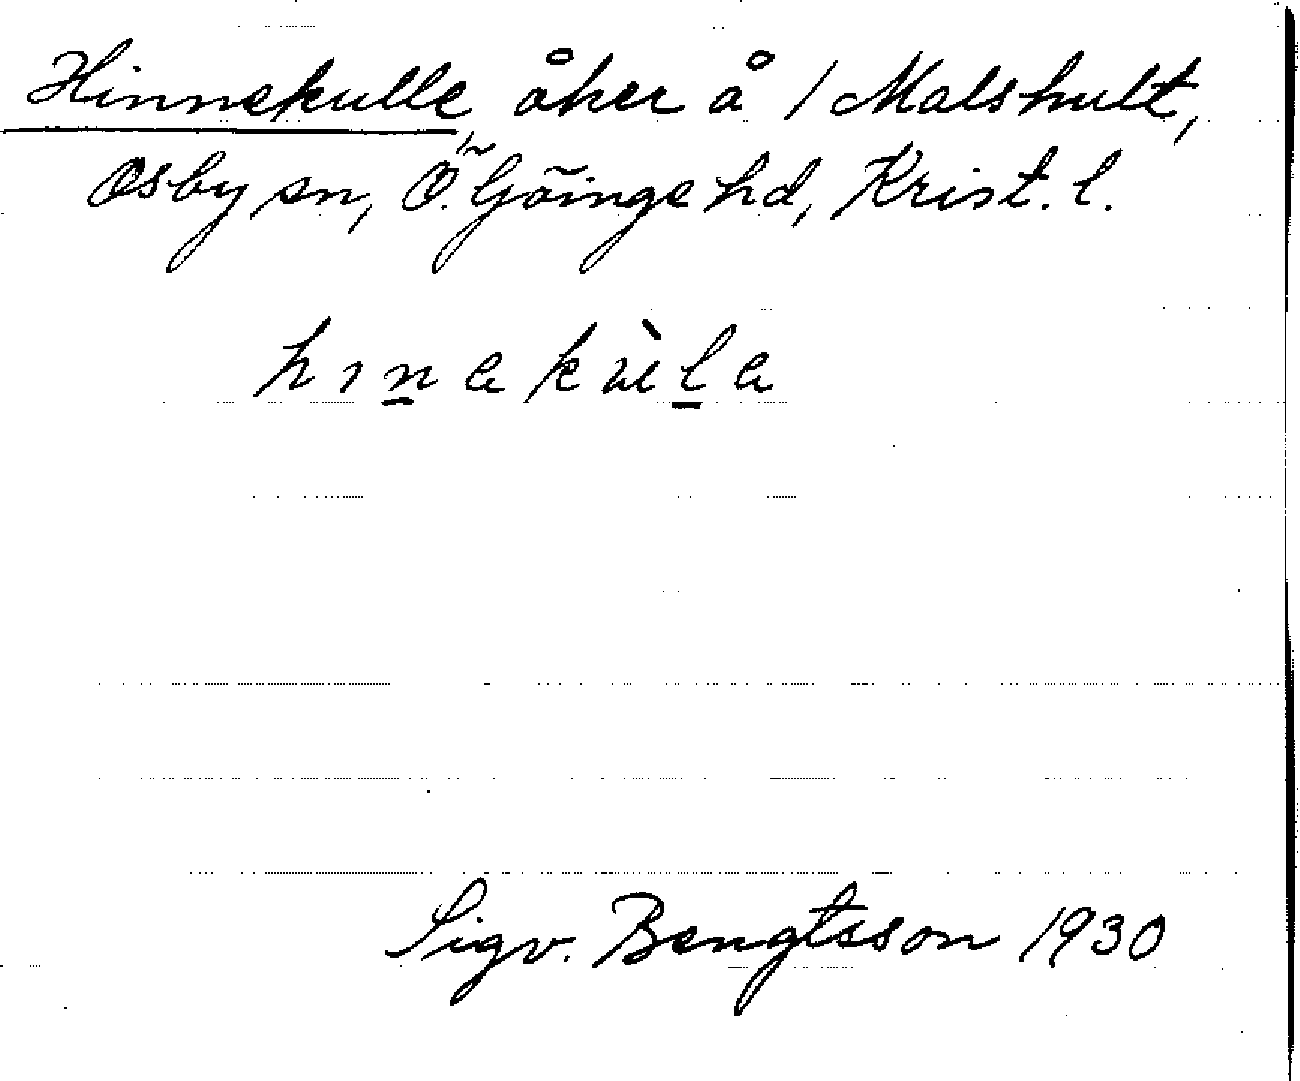 Hinnekulle, åker å 1 Malshult,
Osby sn, Ö. Göinge hd, Krist. l.
hınakùla
Sigv. Bengtsson 1930